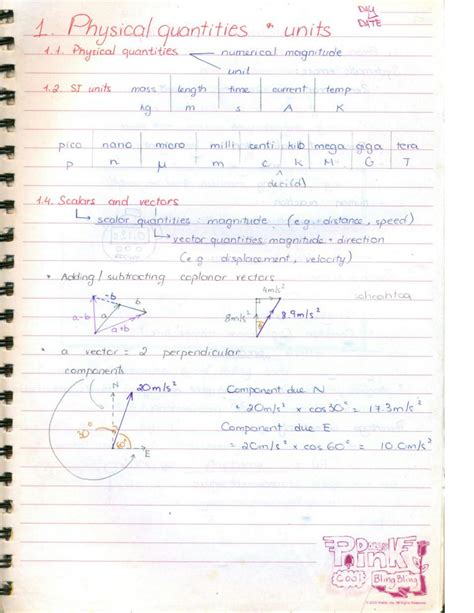 DAY
DATE
1. Physical quantities + units
1.1. Physical quantities numerical magnitude
unit
1.2. SI units mass length time current temp
kg m s A K
pico nano micro milli centi kilo mega giga tera
p n μ m c k M G T
deci(d)
1.4. Scalars and vectors
scalar quantities: magnitude (e.g. distance, speed)
vector quantities: magnitude + direction
(e.g. displacement, velocity)
* Adding/subtracting coplanar vectors
-b b a-b a a+b
4m/s² 8m/s² 8.9m/s² θ
* a vector = 2 perpendicular
components
N 20m/s² 30° 60° E
Component due N
= 20m/s² × cos30° = 17.3m/s²
Component due E
= 20m/s² × cos60° = 10.0m/s²
Pink
Cool BlingBling